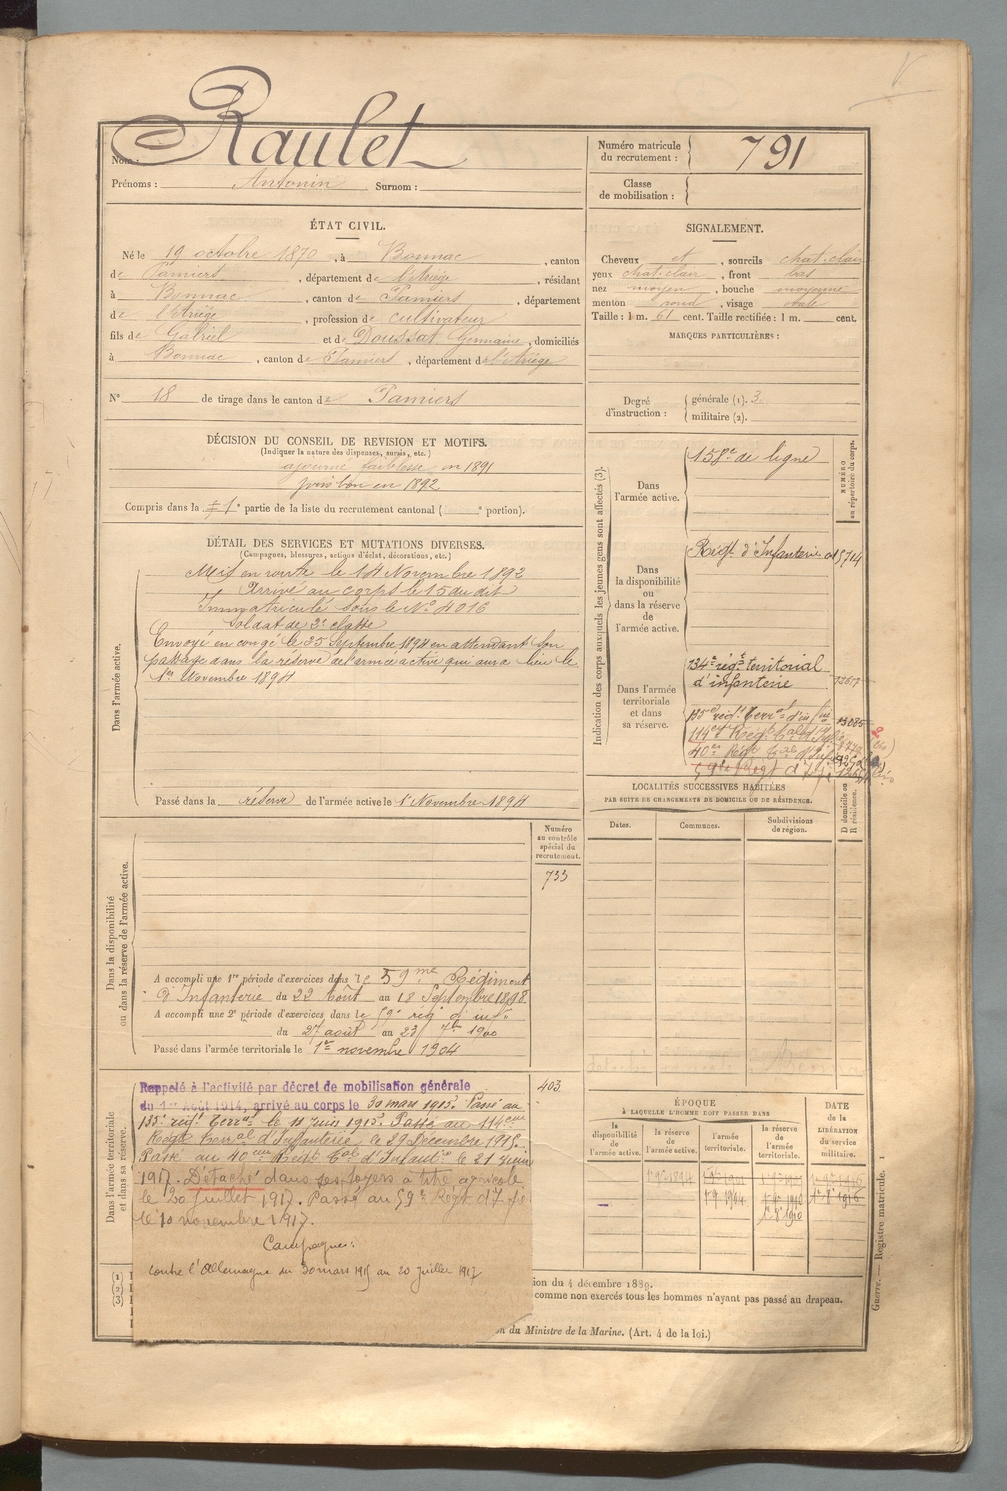 Raulet
Nom :
Prénoms : Antonin Surnom :
Numéro matricule du recrutement : 791
Classe de mobilisation :
ÉTAT CIVIL.
Né le 19 octobre 1870, à Bonnac, canton
de Pamiers, département de l'Ariège, résidant
à Bonnac, canton de Pamiers, département
de l'Ariège, profession de cultivateur
fils de Gabriel et de Doussat Germaine, domiciliés
à Bonnac, canton de Pamiers, département de l'Ariège
N° 18 de tirage dans le canton de Pamiers
SIGNALEMENT.
Cheveux et, sourcils chat. clair
yeux chat. clair, front bas
nez moyen, bouche moyenne
menton rond, visage ovale
Taille : 1 m. 61 cent. Taille rectifiée : 1 m. cent.
MARQUES PARTICULIÈRES :
Degré d'instruction : générale (1). 3.
militaire (2).
DÉCISION DU CONSEIL DE REVISION ET MOTIFS.
(Indiquer la nature des dispenses, sursis, etc.)
ajourné faiblesse en 1891
bon en 1892
Compris dans la 1e partie de la liste du recrutement cantonal ( e portion).
DÉTAIL DES SERVICES ET MUTATIONS DIVERSES.
(Campagnes, blessures, actions d'éclat, décorations, etc.)
Dans l'armée active.
Mis en route le 14 Novembre 1892
Arrivé au corps le 15 du dit
Immatriculé sous le N° 4016
Soldat de 2e classe
Envoyé en congé le 25 Septembre 1894 en attendant son
passage dans la réserve de l'armée active qui aura lieu le
1er Novembre 1894
Passé dans la réserve de l'armée active le 1er Novembre 1894
Indication des corps auxquels les jeunes gens sont affectés (3).
NUMÉRO au répertoire du corps.
Dans l'armée active.
158e de ligne
Dans la disponibilité ou dans la réserve de l'armée active.
Régt d'Infanterie
Dans l'armée territoriale et dans sa réserve.
134e rég. territorial
d'infanterie
135e régt terral d'infie
114e Régt
40e Régt
59e Régt
LOCALITÉS SUCCESSIVES HABITÉES
PAR SUITE DE CHANGEMENTS DE DOMICILE OU DE RÉSIDENCE.
Dates. Communes. Subdivisions de région. D domicile ou R résidence.
Dans la disponibilité ou dans la réserve de l'armée active.
Numéro au contrôle spécial du recrutement.
733
A accompli une 1re période d'exercices dans le 59me Régiment
d'Infanterie du 22 Août au 18 Septembre 1898
A accompli une 2e période d'exercices dans le 59e rég. d'infie
du 27 août au 23 7bre 1900
Passé dans l'armée territoriale le 1er novembre 1904
Dans l'armée territoriale et dans sa réserve.
403
Rappelé à l'activité par décret de mobilisation générale
du 1er Août 1914, arrivé au corps le 30 mars 1915. Passé au
135e régt terral le 11 Juin 1915 Passé au 114eme
Régt terral d'Infanterie le 29 Décembre 1915.
Passé au 40eme Régt tal d'Infantie le 21 Juin
1917. Détaché dans ses foyers à titre agricole
le 20 Juillet 1917. Passé au 59e Régt d'Ifie
le 10 novembre 1917.
Campagnes :
contre l'Allemagne du 30 mars 1915 au 20 Juillet 1917
ÉPOQUE
À LAQUELLE L'HOMME DOIT PASSER DANS
la disponibilité de l'armée active. la réserve de l'armée active. l'armée territoriale. la réserve de l'armée territoriale.
DATE de la LIBÉRATION du service militaire.
(1)
(2)
(3)
ion du 4 décembre 1889.
comme non exercés tous les hommes n'ayant pas passé au drapeau.
n du Ministre de la Marine. (Art. 4 de la loi.)
Guerre. — Registre matricule. 1